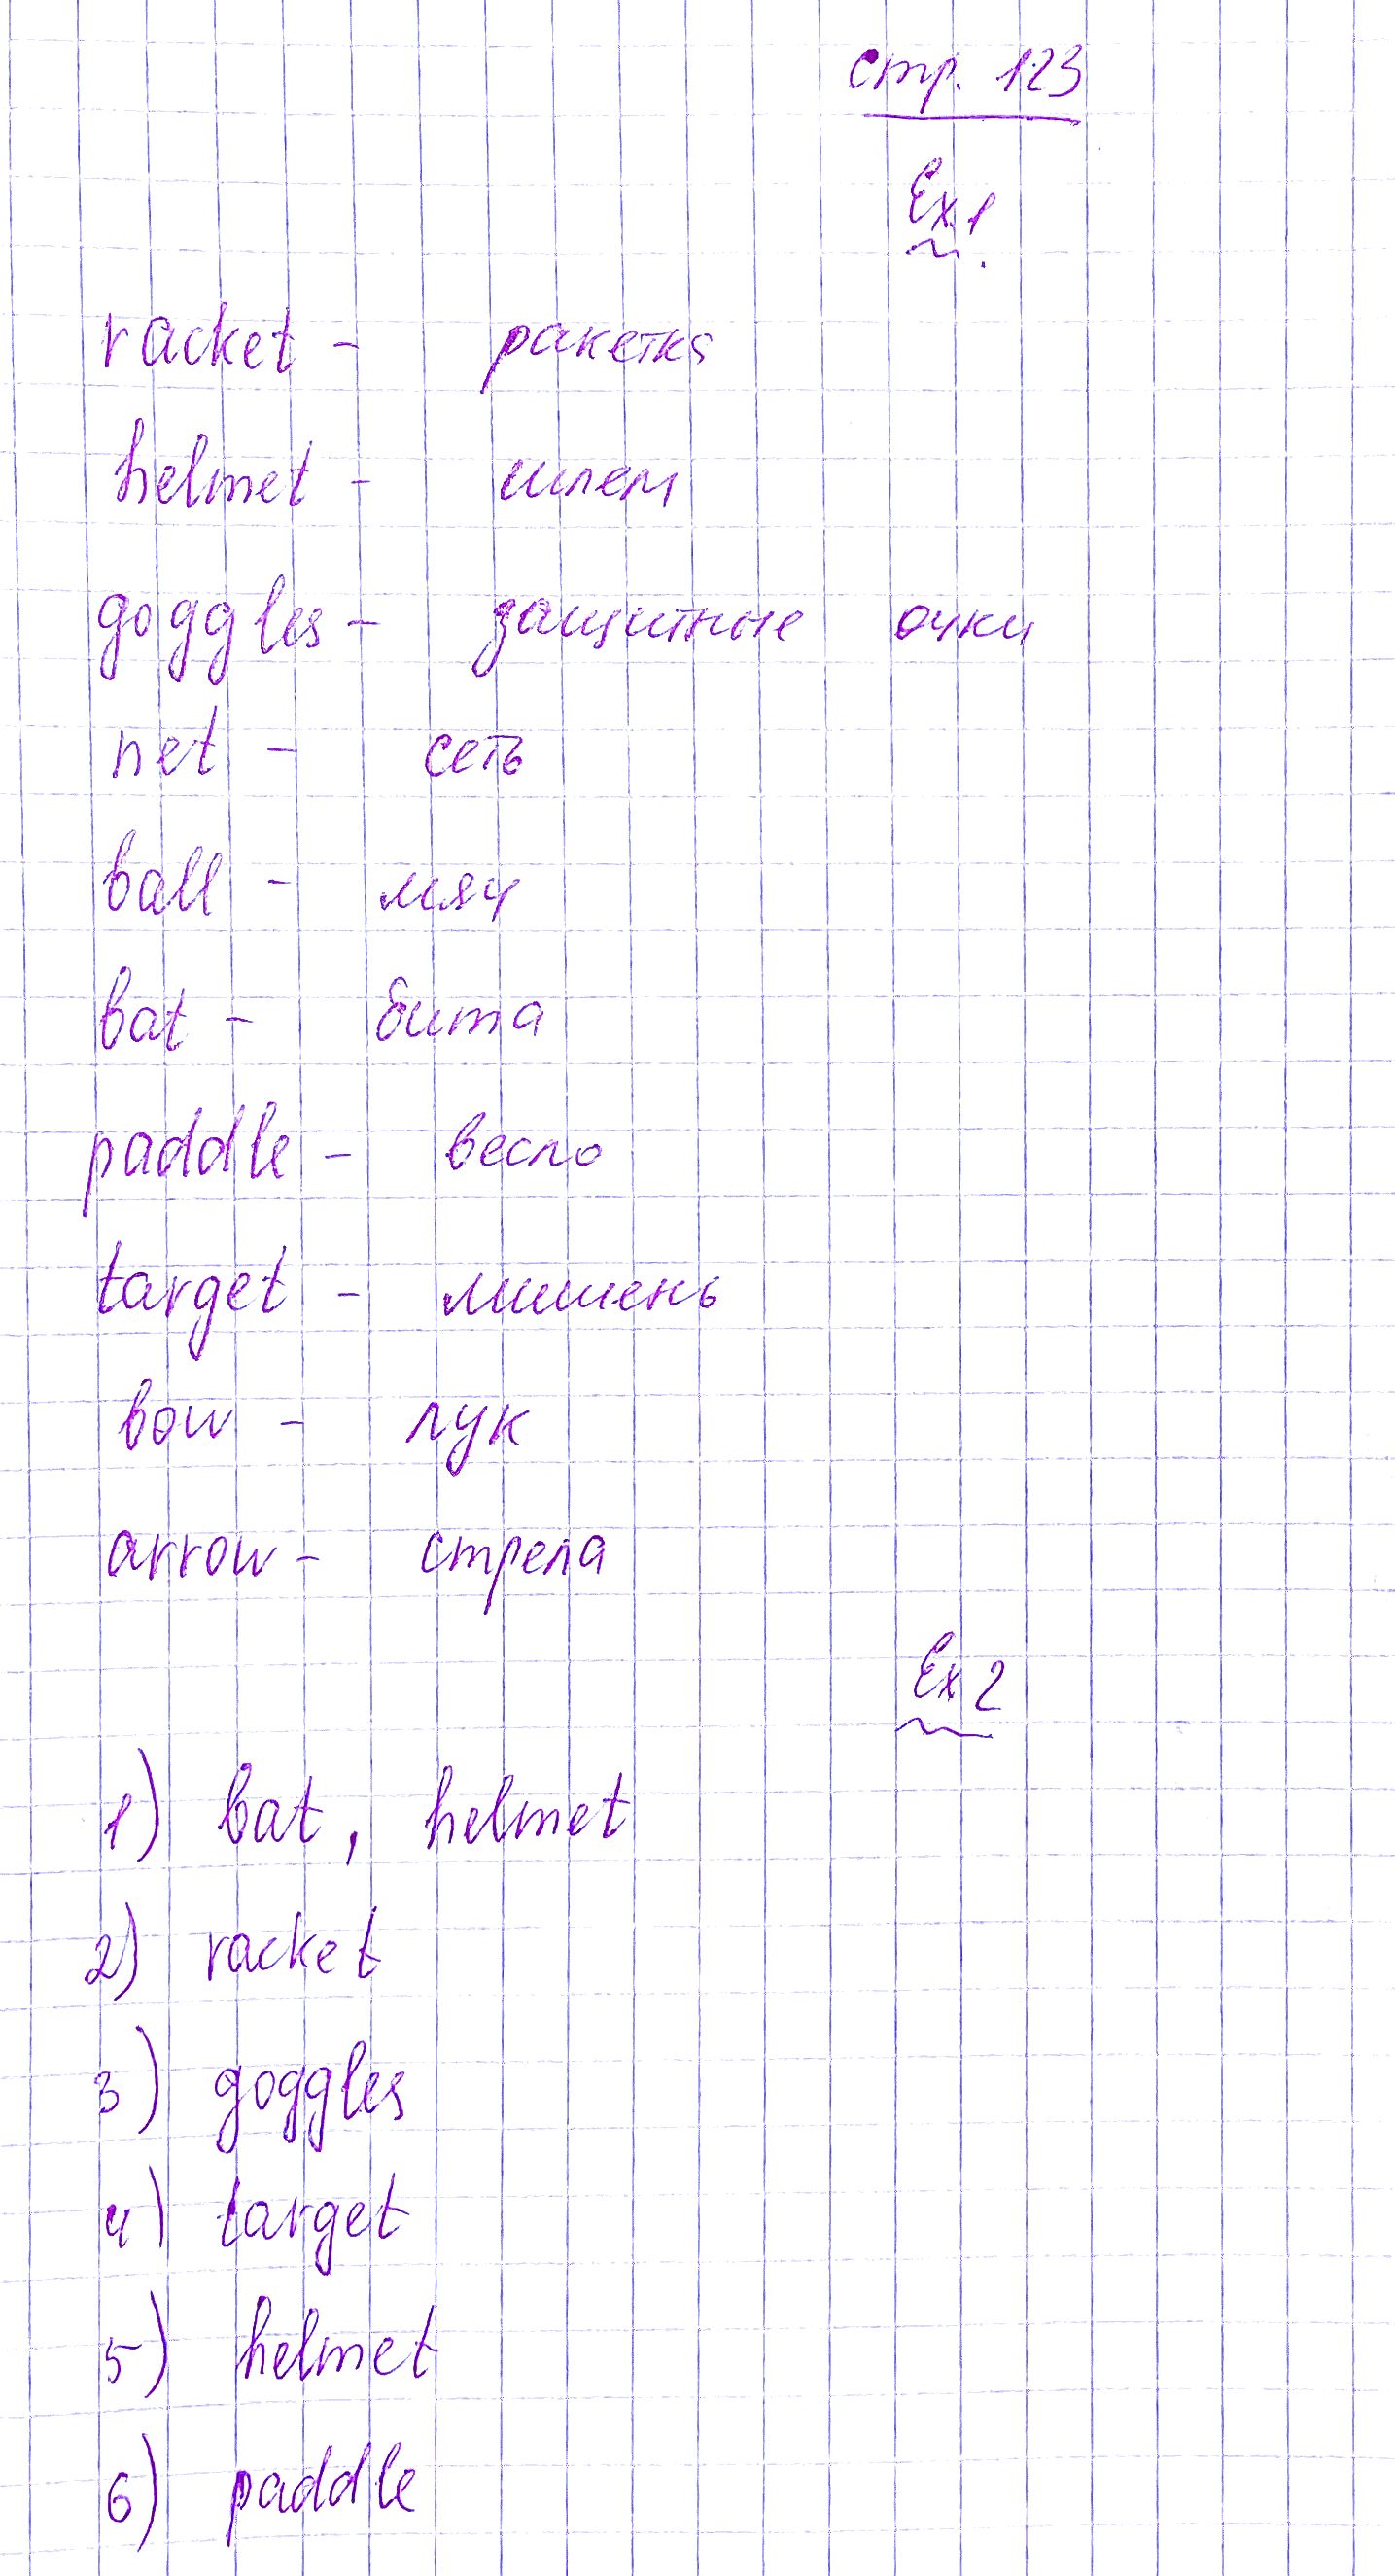 стр. 123
Ex. 1
racket - ракетка
helmet - шлем
goggles - защитные очки
net - сеть
ball - мяч
bat - бита
paddle - весло
target - мишень
bow - лук
arrow - стрела
Ex 2
1) bat, helmet
2) racket
3) goggles
4) target
5) helmet
6) paddle